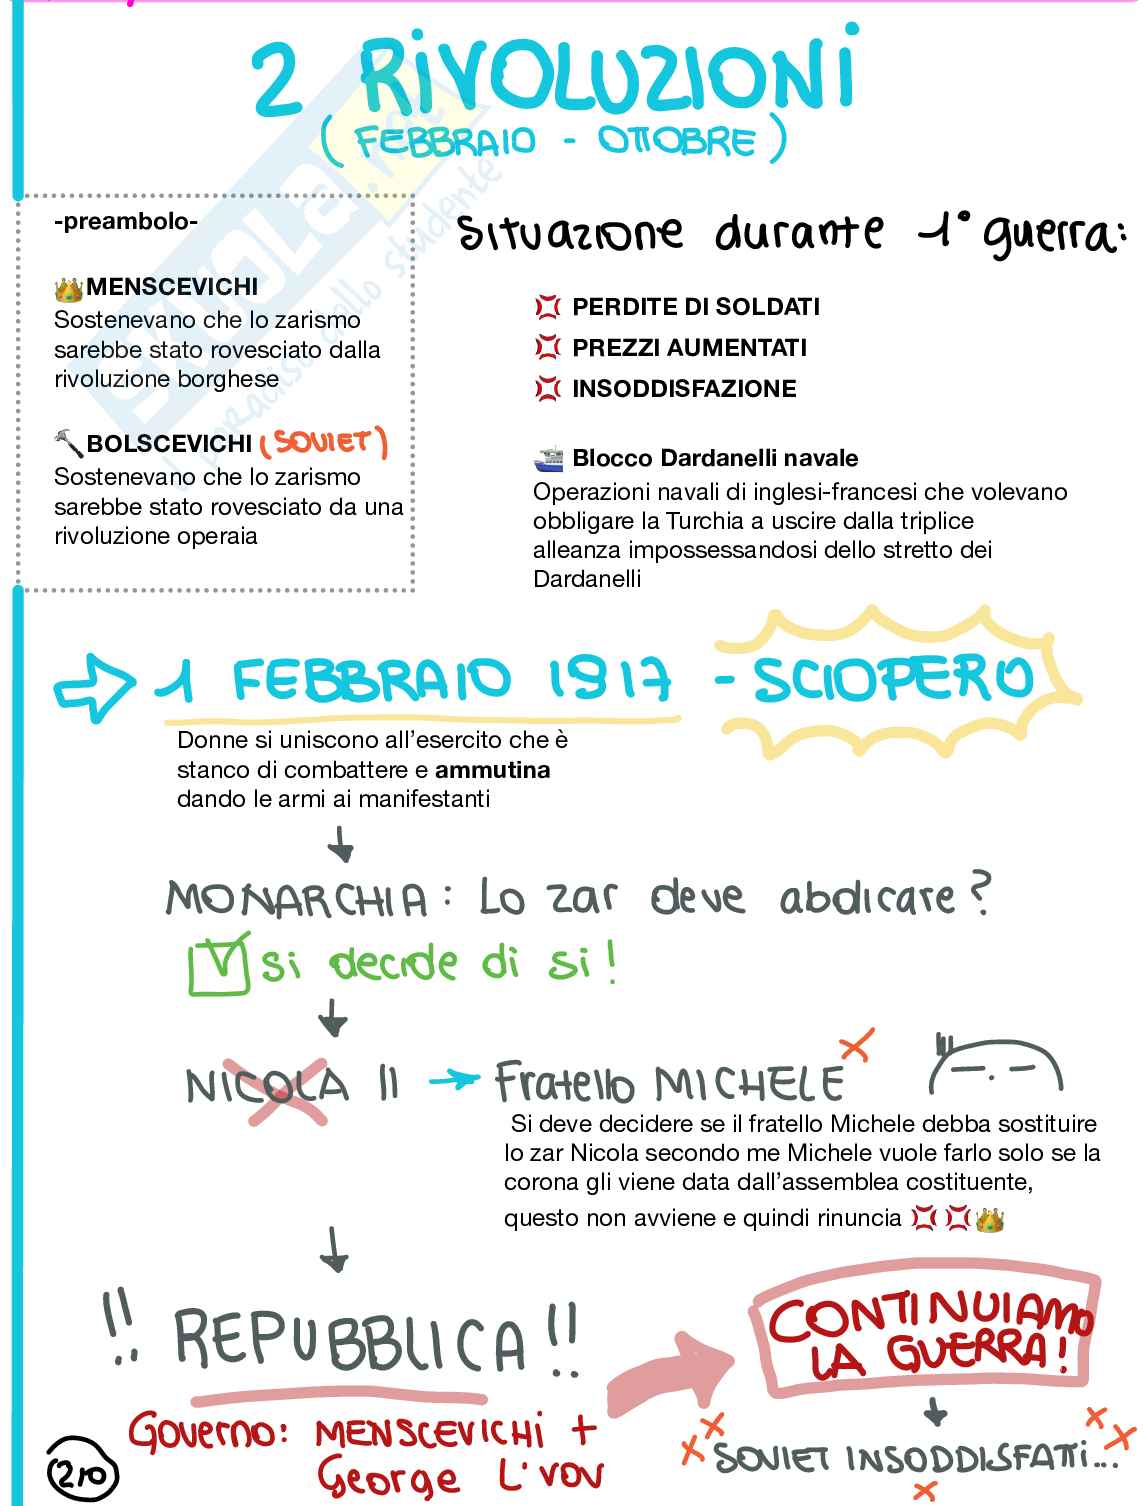 2 RIVOLUZIONI
(FEBBRAIO - OTTOBRE)
-preambolo-
MENSCEVICHI
Sostenevano che lo zarismo
sarebbe stato rovesciato dalla
rivoluzione borghese
BOLSCEVICHI (SOVIET)
Sostenevano che lo zarismo
sarebbe stato rovesciato da una
rivoluzione operaia
Situazione durante 1° guerra:
PERDITE DI SOLDATI
PREZZI AUMENTATI
INSODDISFAZIONE
Blocco Dardanelli navale
Operazioni navali di inglesi-francesi che volevano
obbligare la Turchia a uscire dalla triplice
alleanza impossessandosi dello stretto dei
Dardanelli
1 FEBBRAIO 1917 - SCIOPERO
Donne si uniscono all'esercito che è
stanco di combattere e ammutina
dando le armi ai manifestanti
MONARCHIA: Lo zar deve abdicare?
si decide di si!
NICOLA II → Fratello MICHELE
Si deve decidere se il fratello Michele debba sostituire
lo zar Nicola secondo me Michele vuole farlo solo se la
corona gli viene data dall'assemblea costituente,
questo non avviene e quindi rinuncia
!! REPUBBLICA !!
CONTINUIAMO
LA GUERRA!
Governo: MENSCEVICHI +
George L'vov
SOVIET INSODDISFATTI...
210
SKUOLA.net
il paradiso dello studente